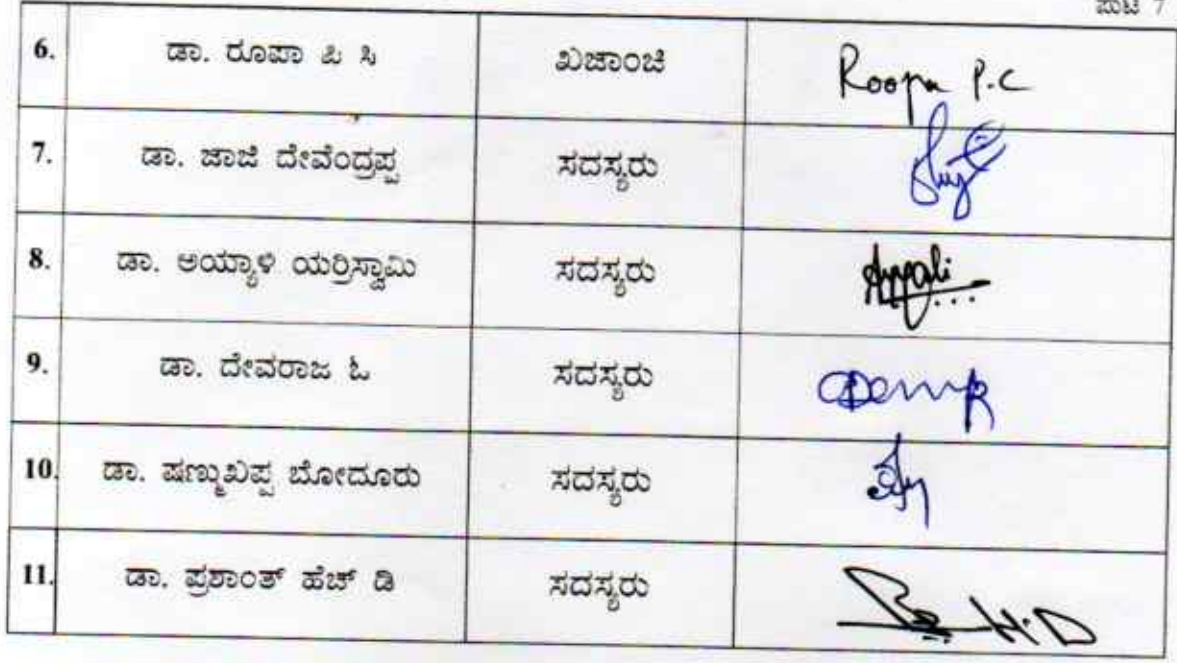 ಪುಟ 7
6. ಡಾ. ರೂಪಾ ಪಿ ಸಿ ಖಜಾಂಚಿ Roopa P.C
7. ಡಾ. ಜಾಜಿ ದೇವೇಂದ್ರಪ್ಪ ಸದಸ್ಯರು
8. ಡಾ. ಅಯ್ಯಾಳಿ ಯರ್ರಿಸ್ವಾಮಿ ಸದಸ್ಯರು
9. ಡಾ. ದೇವರಾಜ ಓ ಸದಸ್ಯರು
10. ಡಾ. ಷಣ್ಮುಖಪ್ಪ ಬೋದೂರು ಸದಸ್ಯರು
11. ಡಾ. ಪ್ರಶಾಂತ್ ಹೆಚ್ ಡಿ ಸದಸ್ಯರು